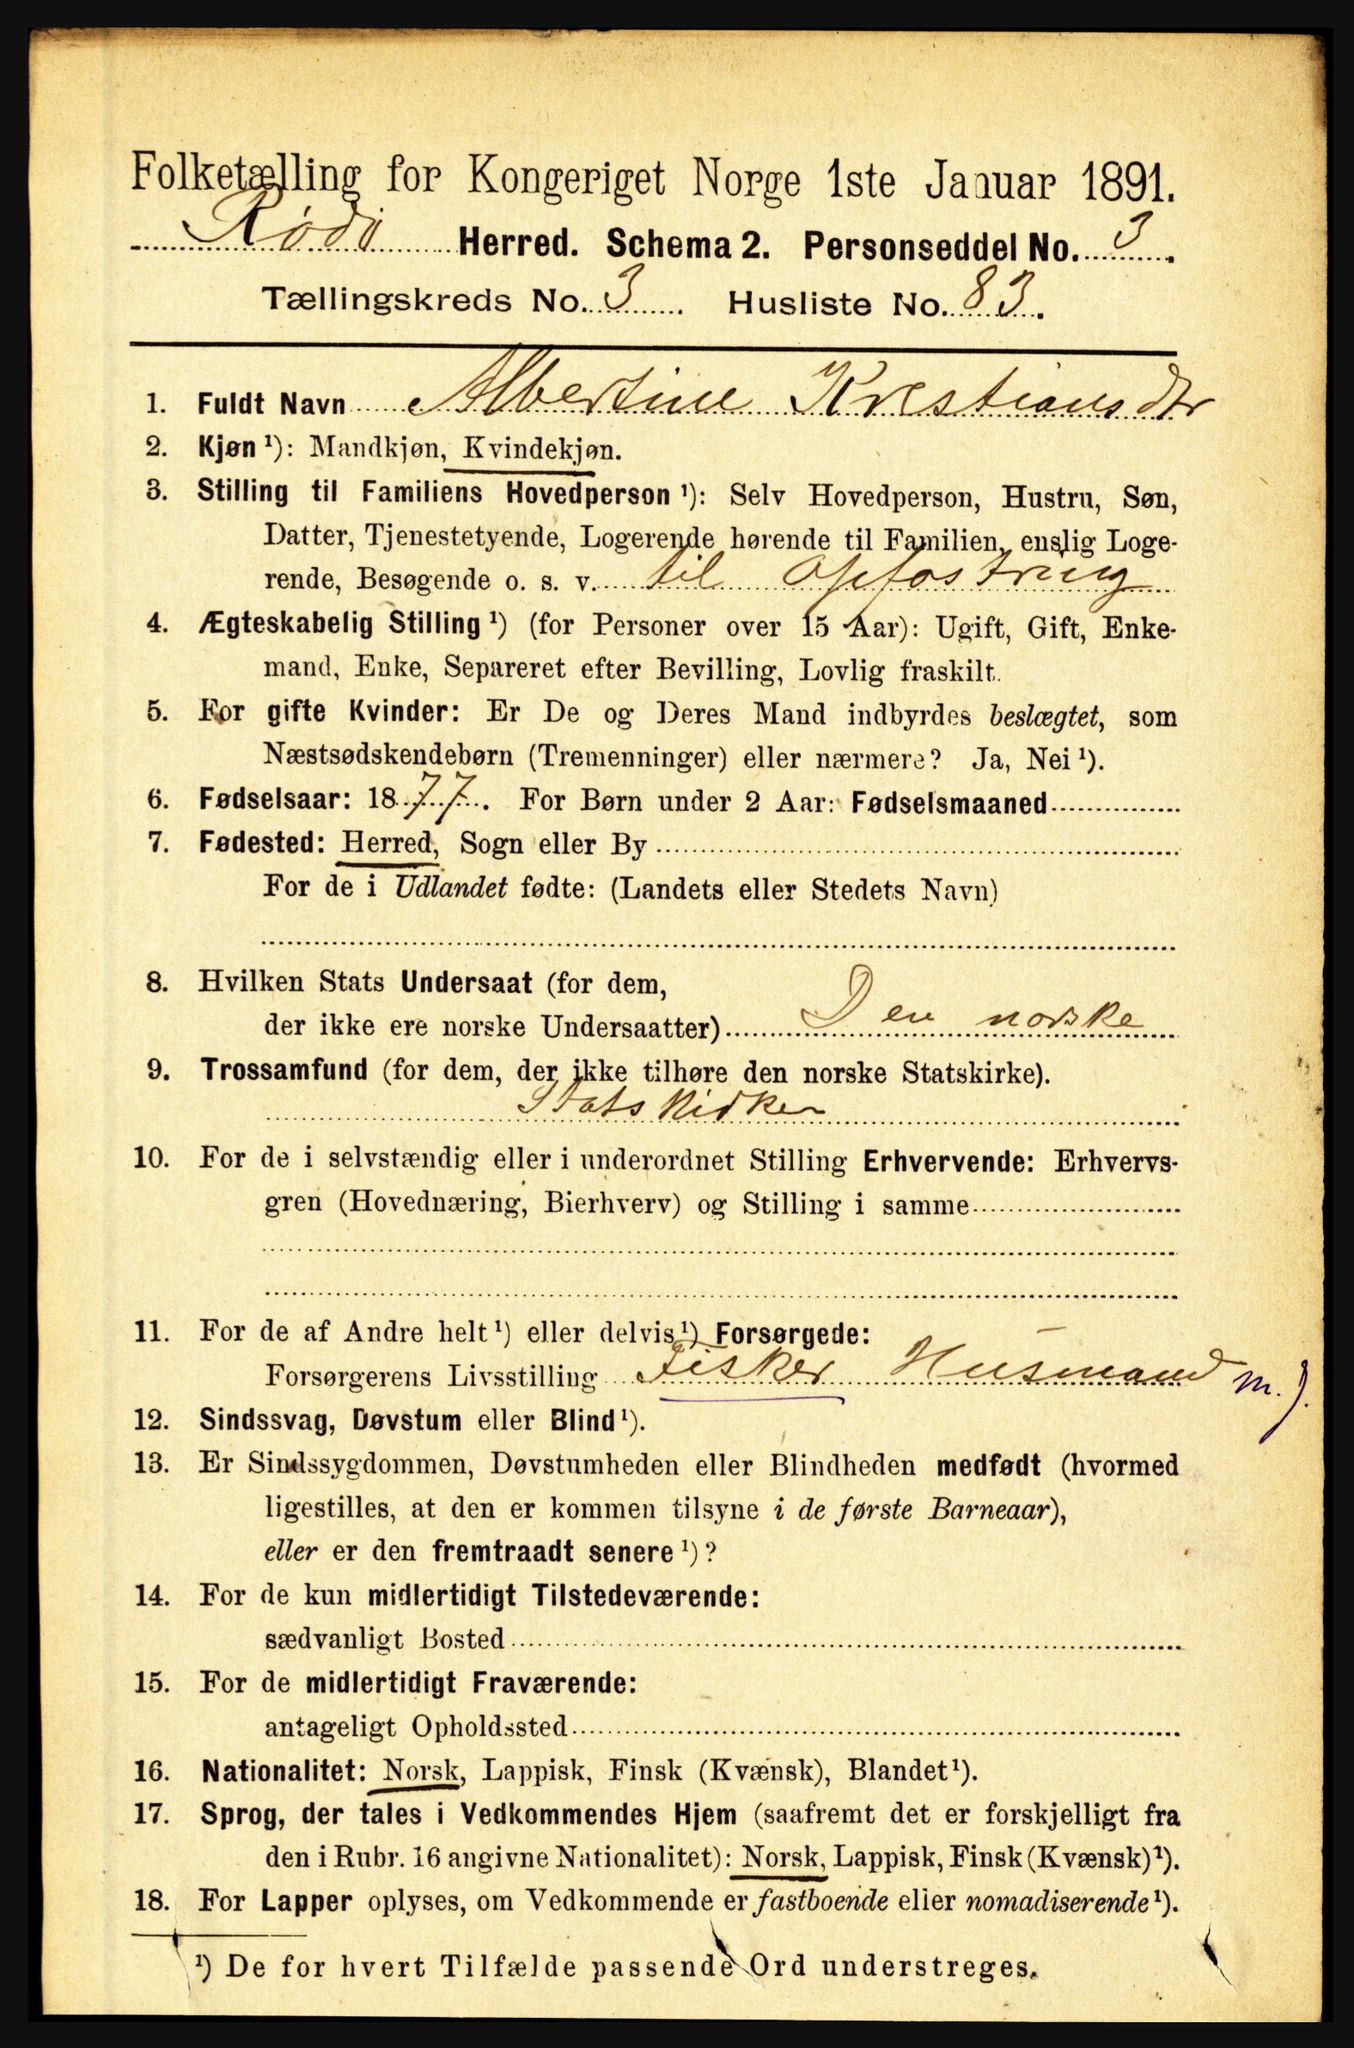 Folketælling for Kongeriget Norge 1ste Januar 1891.
Rødø Herred. Schema 2. Personseddel No. 3.
Tællingskreds No. 3. Husliste No. 83.
1. Fuldt Navn Albertine Kristiansdtr
2. Kjøn ¹): Mandkjøn, Kvindekjøn.
3. Stilling til Familiens Hovedperson ¹): Selv Hovedperson, Hustru, Søn,
Datter, Tjenestetyende, Logerende hørende til Familien, enslig Loge-
rende, Besøgende o. s. v. til Opfostring
4. Ægteskabelig Stilling ¹) (for Personer over 15 Aar): Ugift, Gift, Enke-
mand, Enke, Separeret efter Bevilling, Lovlig fraskilt.
5. For gifte Kvinder: Er De og Deres Mand indbyrdes beslægtet, som
Næstsødskendebørn (Tremenninger) eller nærmere? Ja, Nei ¹).
6. Fødselsaar: 1877. For Børn under 2 Aar: Fødselsmaaned
7. Fødested: Herred, Sogn eller By
For de i Udlandet fødte: (Landets eller Stedets Navn)
8. Hvilken Stats Undersaat (for dem,
der ikke ere norske Undersaatter) Den norske
9. Trossamfund (for dem, der ikke tilhøre den norske Statskirke).
Statskirken
10. For de i selvstændig eller i underordnet Stilling Erhvervende: Erhvervs-
gren (Hovednæring, Bierhverv) og Stilling i samme
11. For de af Andre helt ¹) eller delvis ¹) Forsørgede:
Forsørgerens Livsstilling Fisker Husmand m. J.
12. Sindssvag, Døvstum eller Blind ¹).
13. Er Sindssygdommen, Døvstumheden eller Blindheden medfødt (hvormed
ligestilles, at den er kommen tilsyne i de første Barneaar),
eller er den fremtraadt senere ¹)?
14. For de kun midlertidigt Tilstedeværende:
sædvanligt Bosted
15. For de midlertidigt Fraværende:
antageligt Opholdssted
16. Nationalitet: Norsk, Lappisk, Finsk (Kvænsk), Blandet ¹).
17. Sprog, der tales i Vedkommendes Hjem (saafremt det er forskjelligt fra
den i Rubr. 16 angivne Nationalitet): Norsk, Lappisk, Finsk (Kvænsk) ¹).
18. For Lapper oplyses, om Vedkommende er fastboende eller nomadiserende ¹).
¹) De for hvert Tilfælde passende Ord understreges.